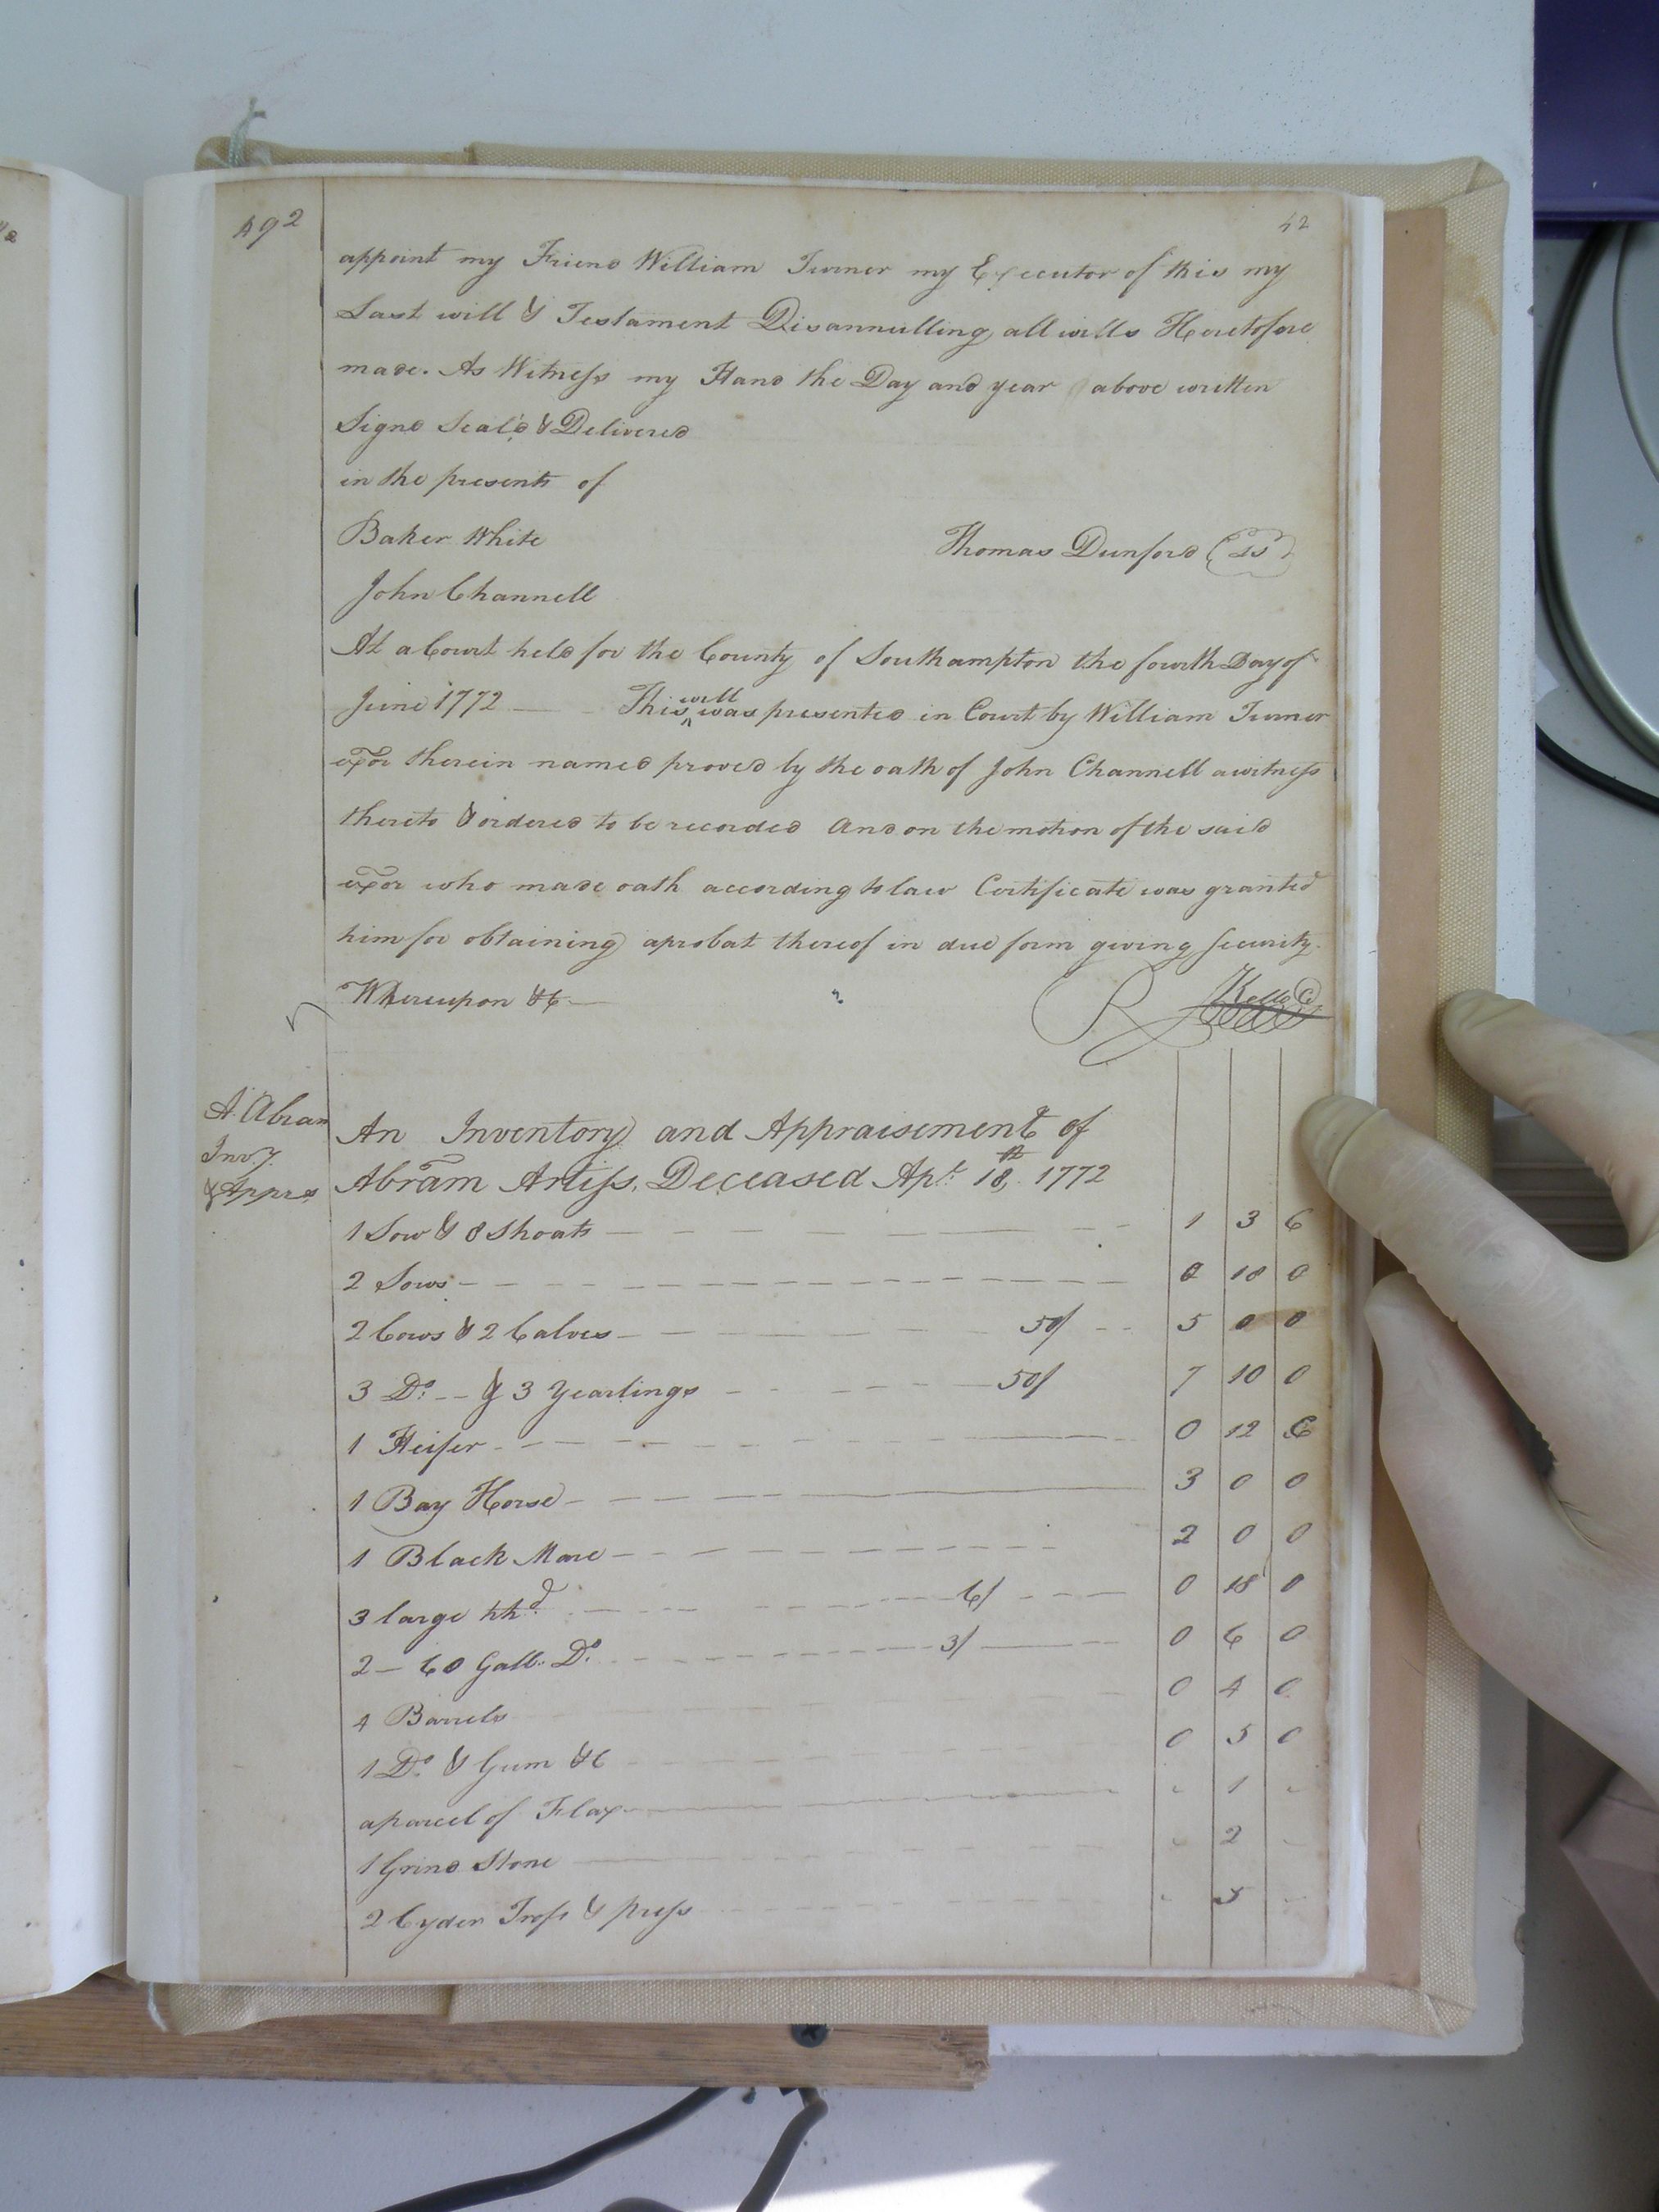 492
42
appoint my Friend William Turner my Executor of this my
Last will & Testament Disannulling all wills Heretofore
made. As Witness my Hand the Day and year above written
Signd Seal'd & Delivered
in the presents of
Baker White
Thomas Dunford (LS)
John Channell
At a Court held for the County of Southampton the fourth Day of
June 1772 — This will was presented in Court by William Turner
exor therein named proved by the oath of John Channell a witness
thereto & ordered to be recorded And on the motion of the said
exor who made oath according to law Certificate was granted
him for obtaining a probat thereof in due form giving security
Whereupon &c —
R Kello C
A. Abram
Inv.y
& Apprs
An Inventory and Appraisement of
Abram Artiss, Deceased Apl. 18th, 1772
1 Sow & 8 Shoats 1 3 6
2 Sows 0 18 0
2 Cows & 2 Calves 50/ 5 0 0
3 Do. & 3 Yearlings 50/ 7 10 0
1 Heifer 0 12 6
1 Bay Horse 3 0 0
1 Black Mare 2 0 0
3 large hhd. 6/ 0 18 0
2 — 60 Gall. Do. 3/ 0 6 0
4 Barrels 0 4 0
1 Do. & Gum &c 0 5 0
a parcel of Flax - 1 -
1 Grind Stone - 2 -
2 Cyder & press - 5 -